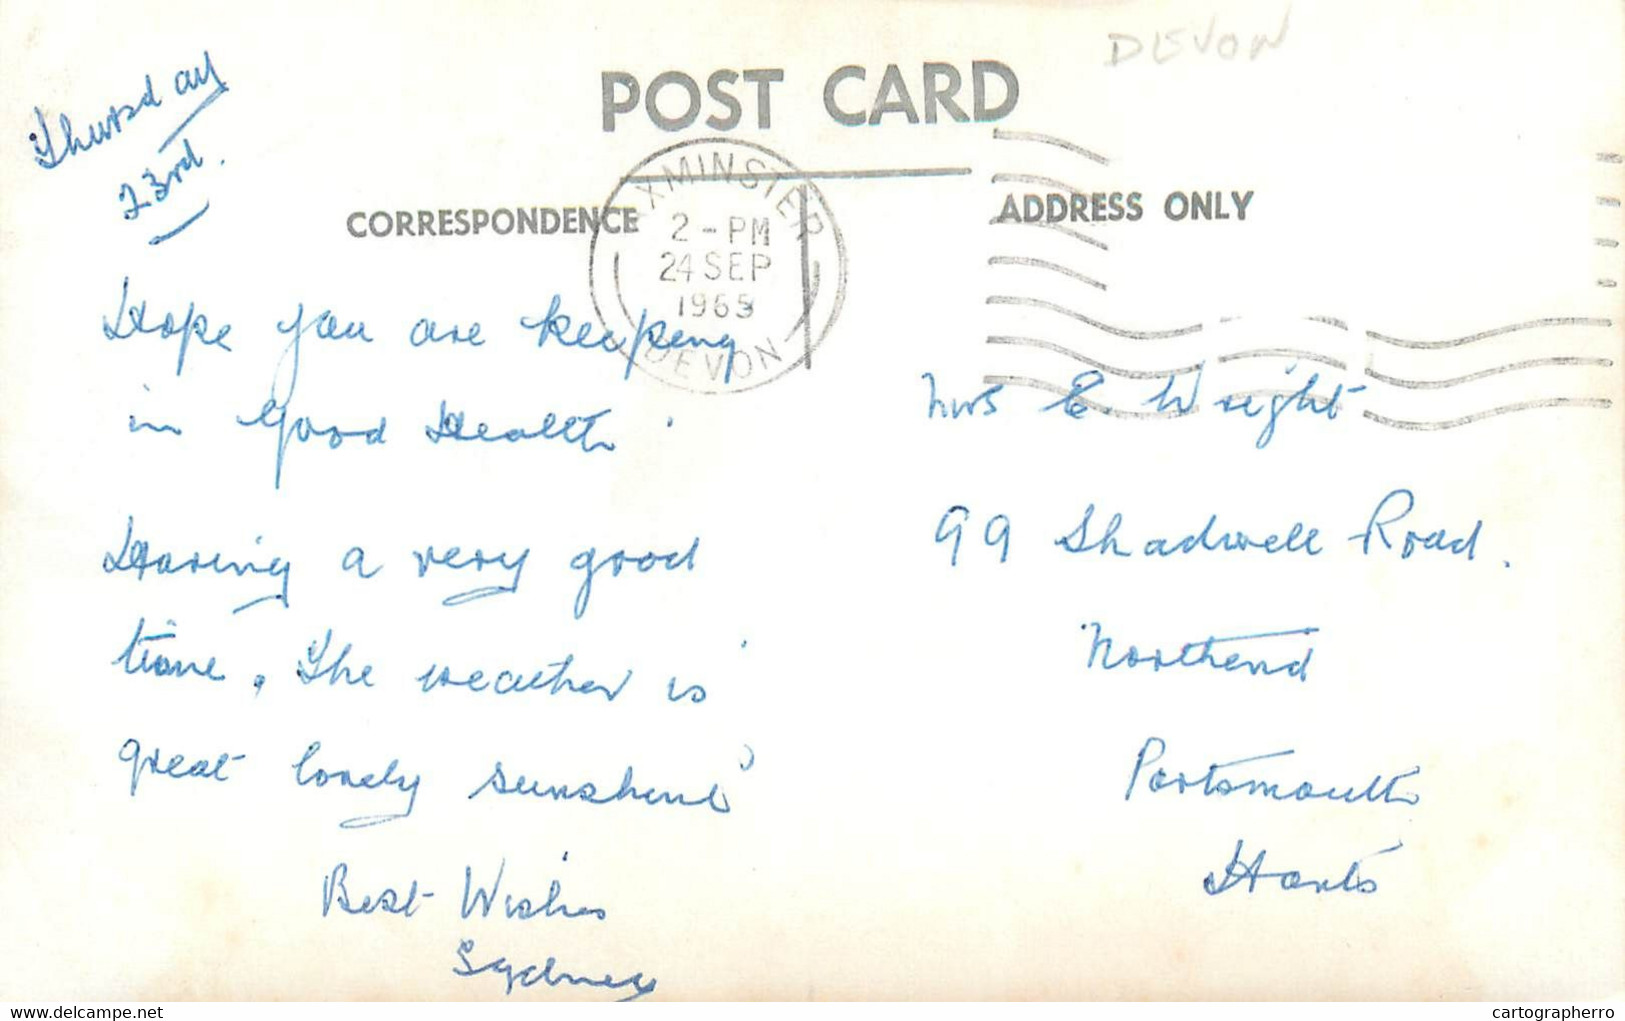 DEVON
POST CARD
Thursday
23rd.
CORRESPONDENCE
ADDRESS ONLY
AXMINSTER
2-PM
24 SEP
1965
DEVON
Hope you are keeping
in Good Health
Having a very good
time. The weather is
great lovely sunshine
Best Wishes
Sydney
Mrs E. Wright
99 Shadwell Road.
Northend
Portsmouth
Hants
delcampe.net
cartographerro